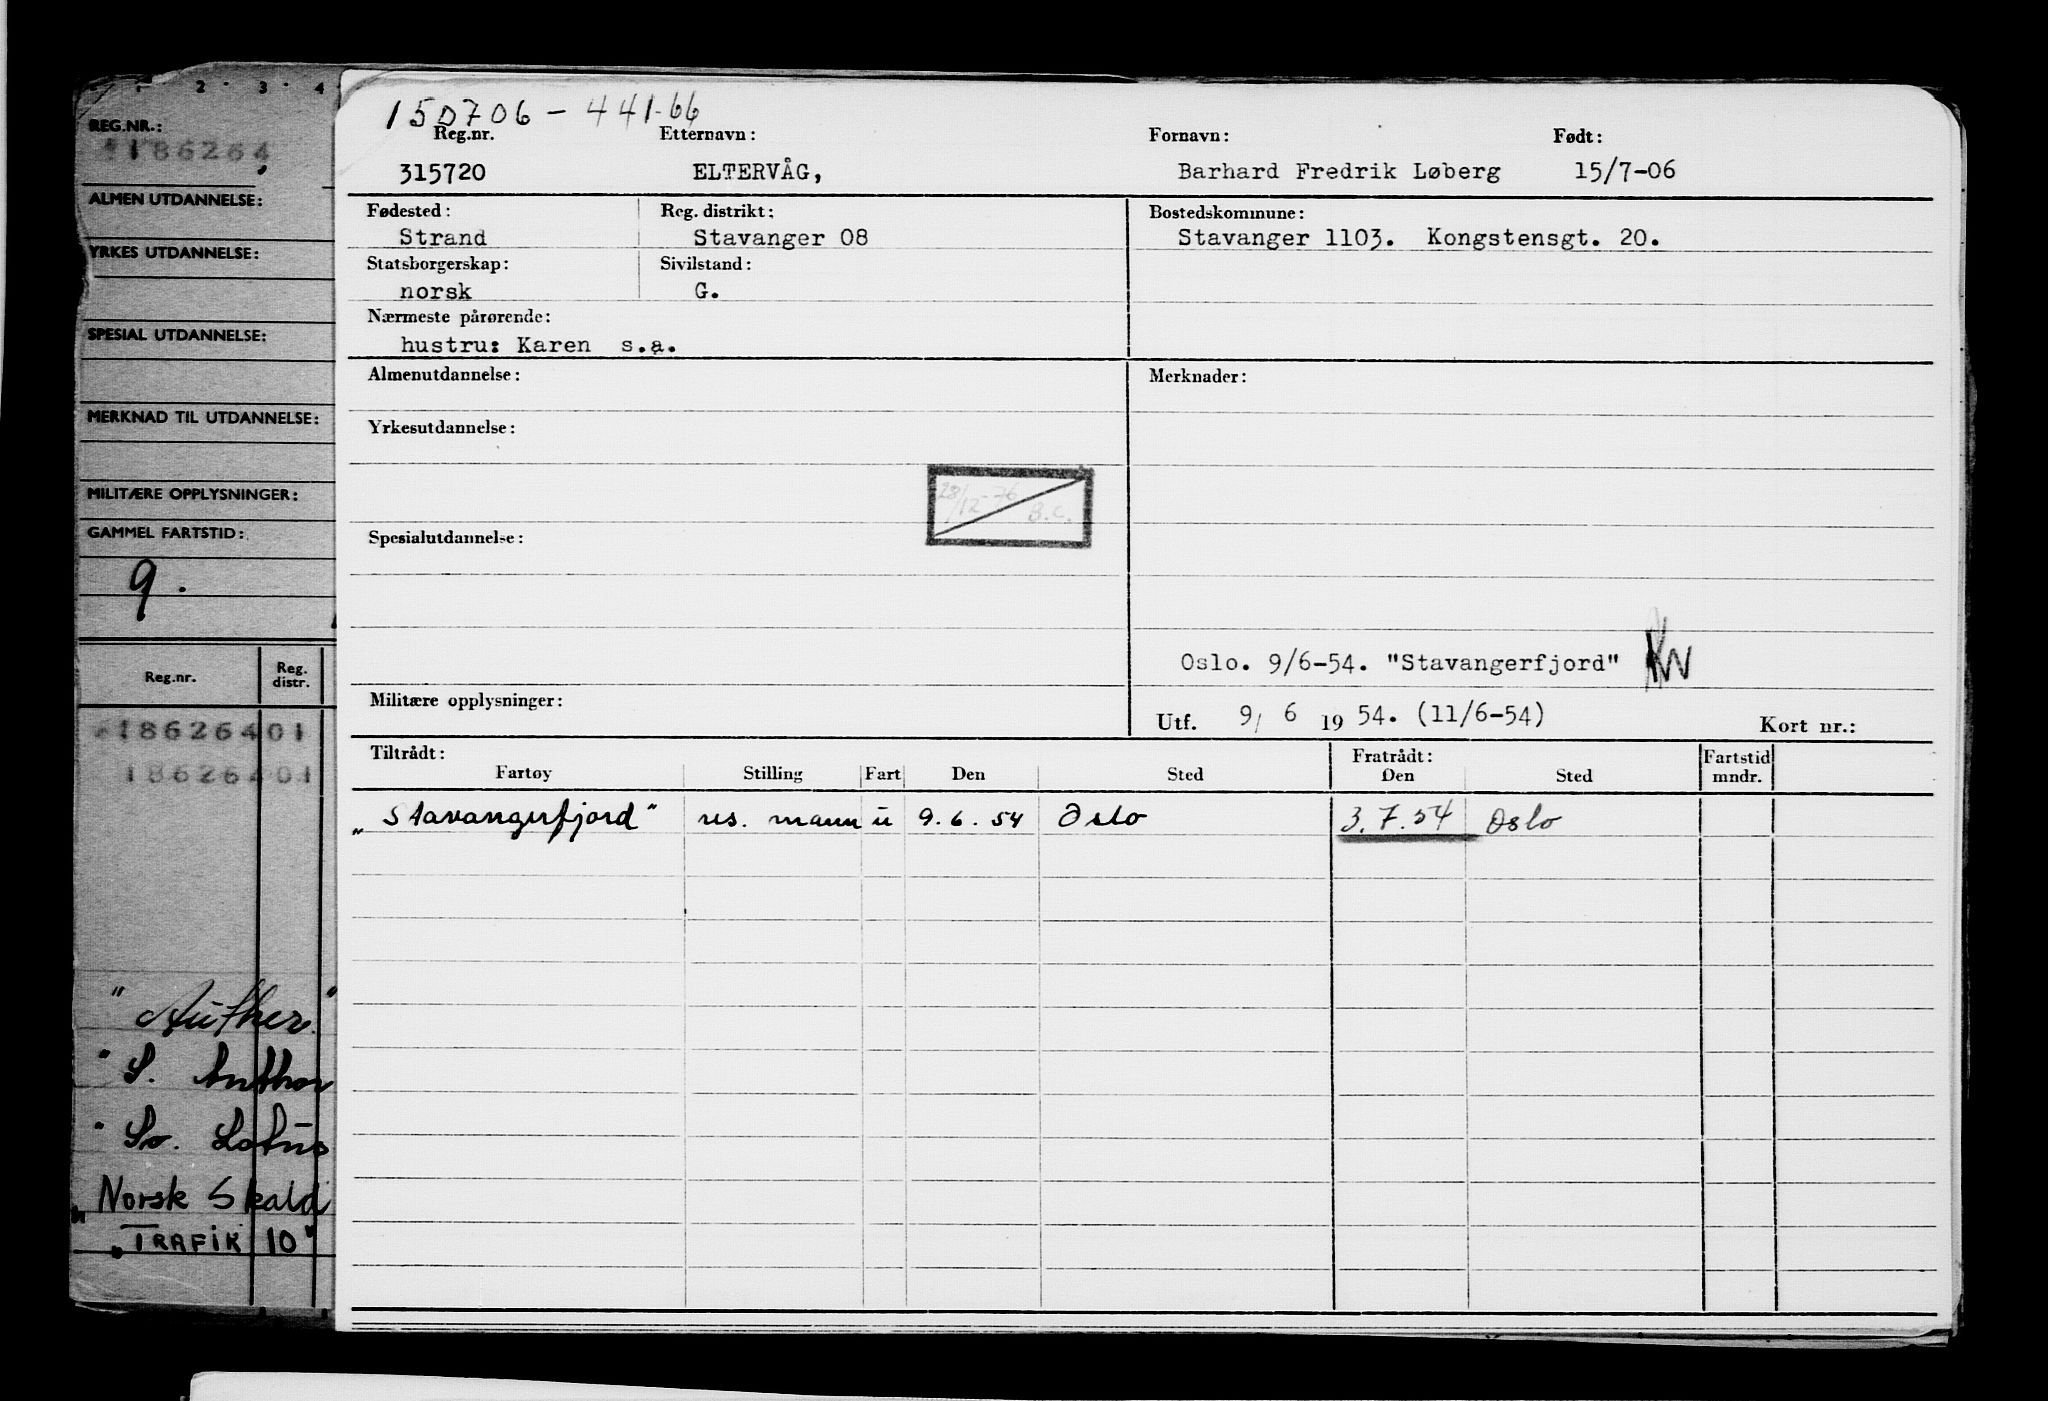 1 2 3 4
REG.NR.:
186264
ALMEN UTDANNELSE:
YRKES UTDANNELSE:
SPESIAL UTDANNELSE:
MERKNAD TIL UTDANNELSE:
MILITÆRE OPPLYSNINGER:
GAMMEL FARTSTID:
9.
Reg.nr. Reg. distr.
18626401
18626401
"Author"
"S. Author
"So. Lotus
"Norsk Skald
"TRAFIK 10"
150706 - 441-66
Reg.nr. Etternavn: Fornavn: Født:
315720 ELTERVÅG, Barhard Fredrik Løberg 15/7-06
Fødested: Reg. distrikt: Bostedskommune:
Strand Stavanger 08 Stavanger 1103. Kongstensgt. 20.
Statsborgerskap: Sivilstand:
norsk G.
Nærmeste pårørende:
hustru: Karen s.a.
Almenutdannelse: Merknader:
Yrkesutdannelse:
28/12-76 B.C.
Spesialutdannelse:
Oslo. 9/6-54. "Stavangerfjord"
Militære opplysninger:
Utf. 9/ 6 19 54. (11/6-54) Kort nr.:
Tiltrådt: Fratrådt: Fartstid mndr.
Fartøy Stilling Fart Den Sted Den Sted
"Stavangerfjord" res. mann u 9.6.54 Oslo 3.7.54 Oslo